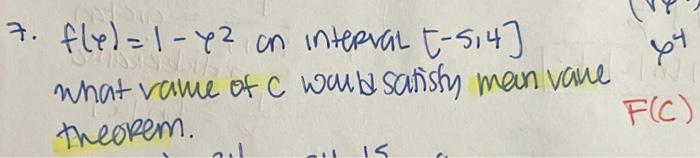 7. f(x) = 1 - x² on interval [-5,4]
what value of c would satisfy mean value
theorem.
x⁴
F(C)